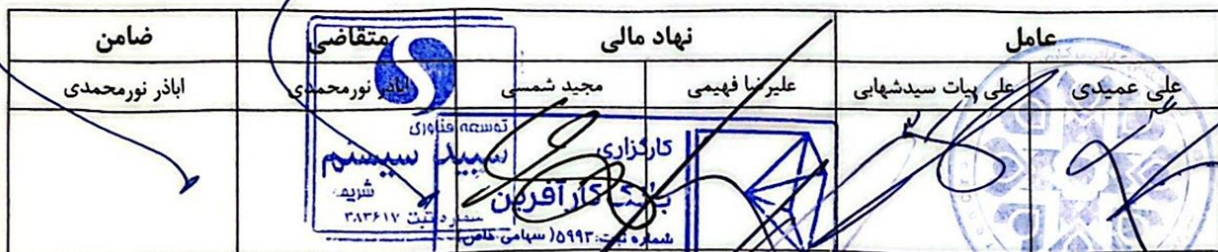 عامل نهاد مالی متقاضی ضامن
علی عمیدی علی بیات سیدشهابی علیرضا فهیمی مجید شمسی اباذر نورمحمدی اباذر نورمحمدی
توسعه فناوری
سپید سیستم
شریف
شماره ثبت ۳۸۳۶۱۷
کارگزاری
بانک کارآفرین
شماره ثبت: ۵۹۹۳ (سهامی خاص)